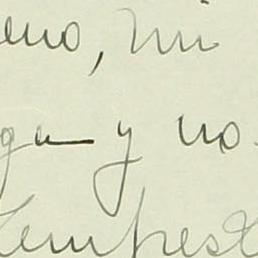 eno, mi
ga y no
tempest